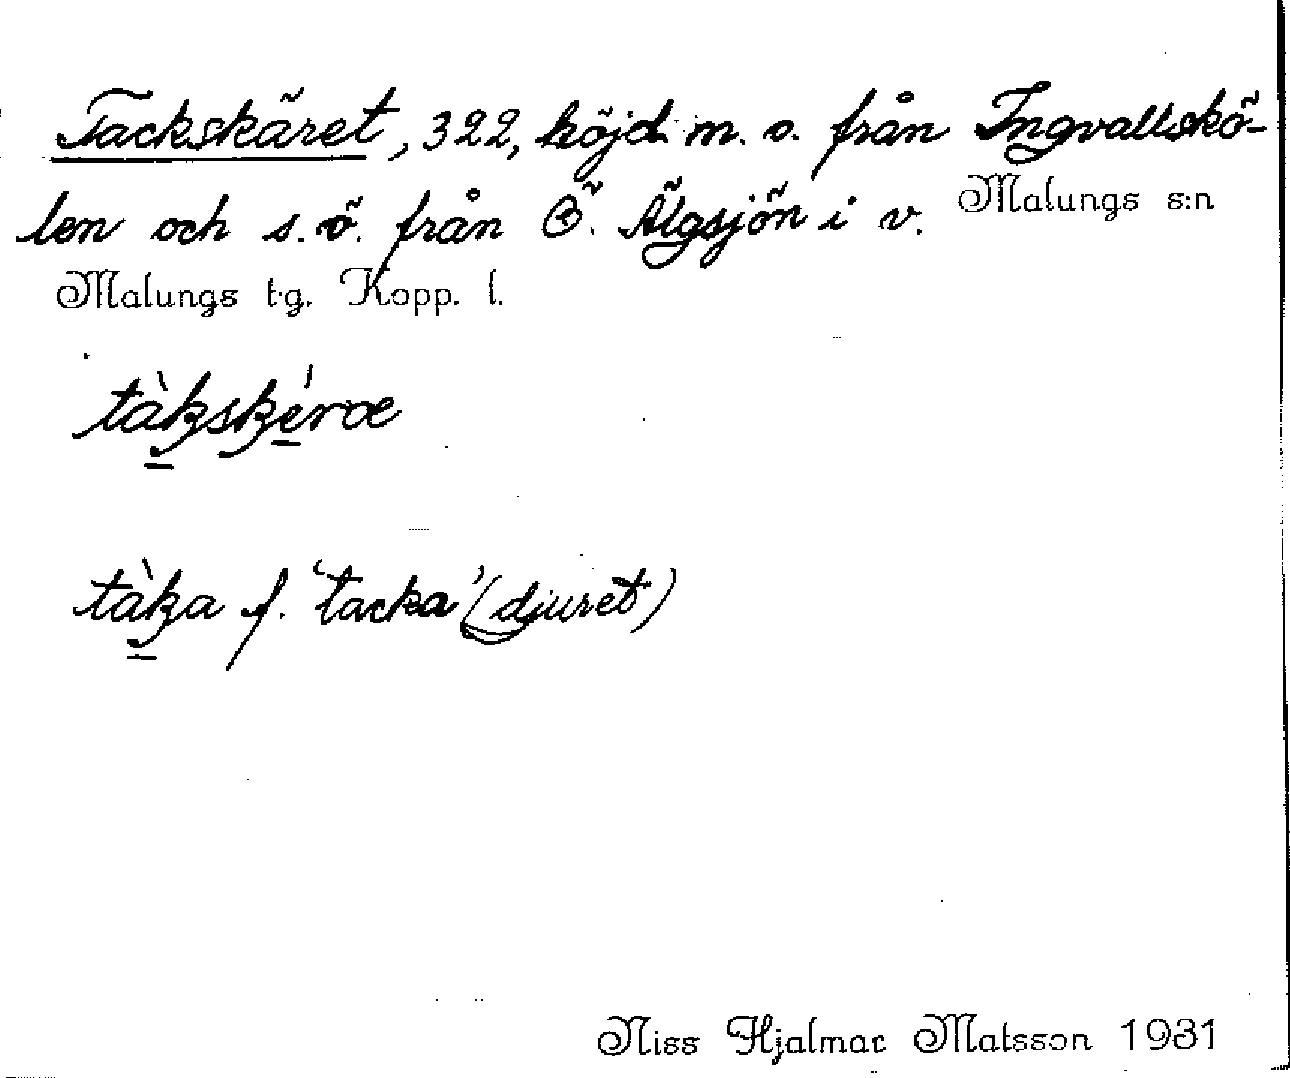 Tackskäret, 322, höjd n. o. från Ingvallskö-
len och s. ö. från Ö. Älgsjön i v. Malungs s:n
Malungs t.g. Kopp. l.
tàkskéræ
tàka f. 'tacka' (djuret)
Niss Hjalmar Matsson 1931